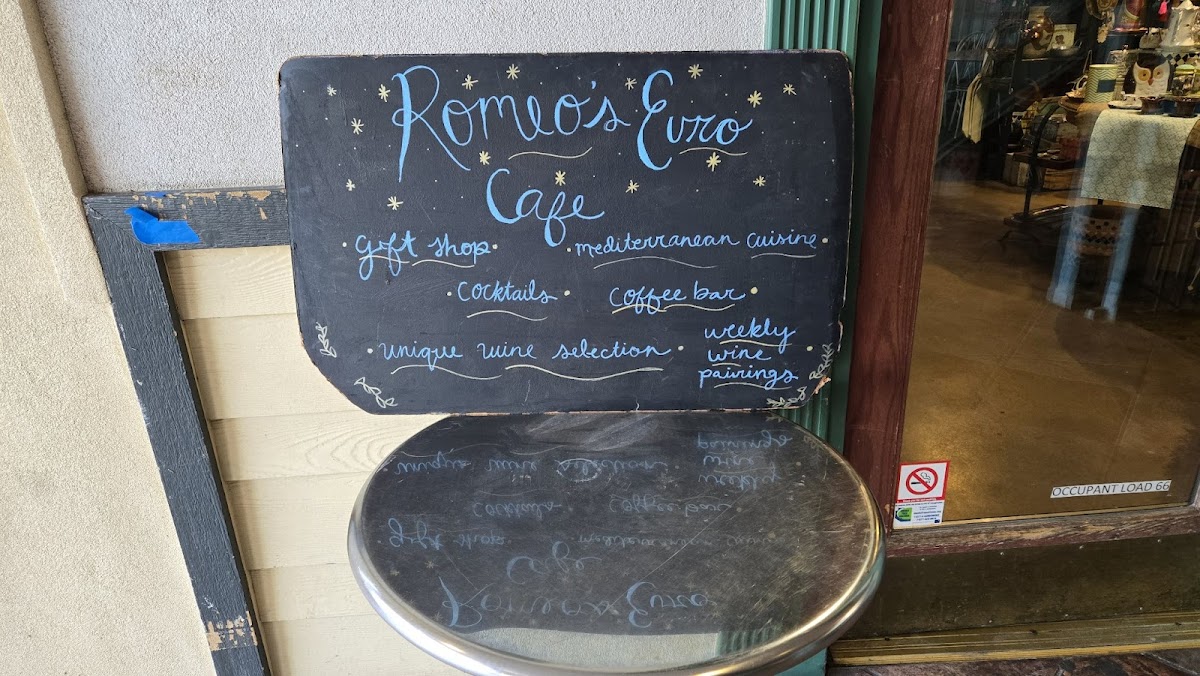 Romeo's Euro
Cafe
· gift shop · · mediterranean cuisine ·
· cocktails · coffee bar ·
· unique wine selection · weekly
wine
pairings ·
OCCUPANT LOAD 66